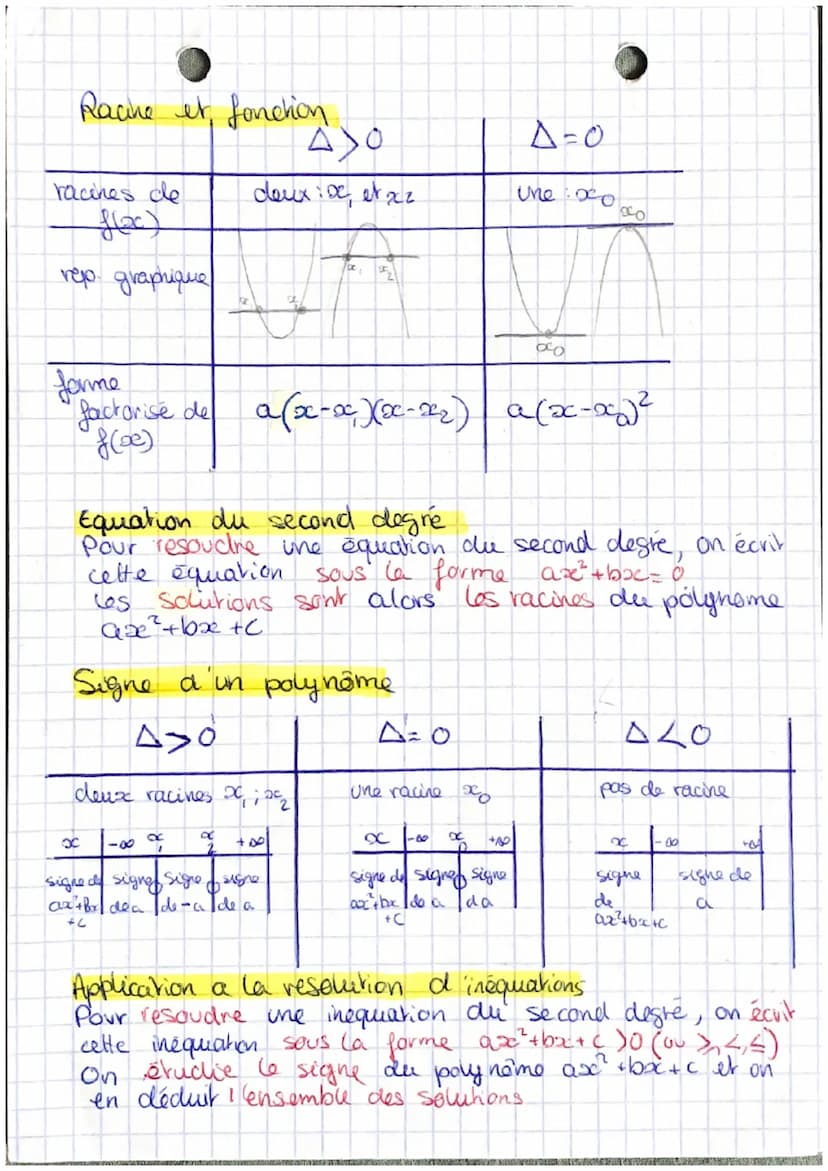 Racine et fonction
Δ>0 Δ=0
racines de f(x) deux : x₁ et x₂ une : x₀
rep. graphique
x x₂ x₁ x₂ x₀ x₀
forme
factorisé de a(x-x₁)(x-x₂) a(x-x₀)²
f(x)
Equation du second degré
Pour resoudre une équation du second degré, on écrit
cette équation sous la forme ax²+bx=0
Les solutions sont alors les racines du polynome
ax²+bx+c
Signe d'un polynôme
Δ>0 Δ=0 Δ<0
deux racines x₁ ; x₂ une racine x₀ pas de racine
x -∞ x₁ x₂ +∞ x -∞ x₀ +∞ x -∞ +∞
signe de signe 0 signe 0 signe signe de signe 0 signe signe signe de
ax²+bx de a de -a de a ax²+bx de a da de a
+c +c ax²+bx+c
Application a la resolution d'inéquations
Pour resoudre une inequation du second degré, on écrit
cette inequation sous la forme ax²+bx+c >0 (ou ≥, <, ≤)
On étudie le signe du polynôme ax²+bx+c et on
en déduit l'ensemble des solutions